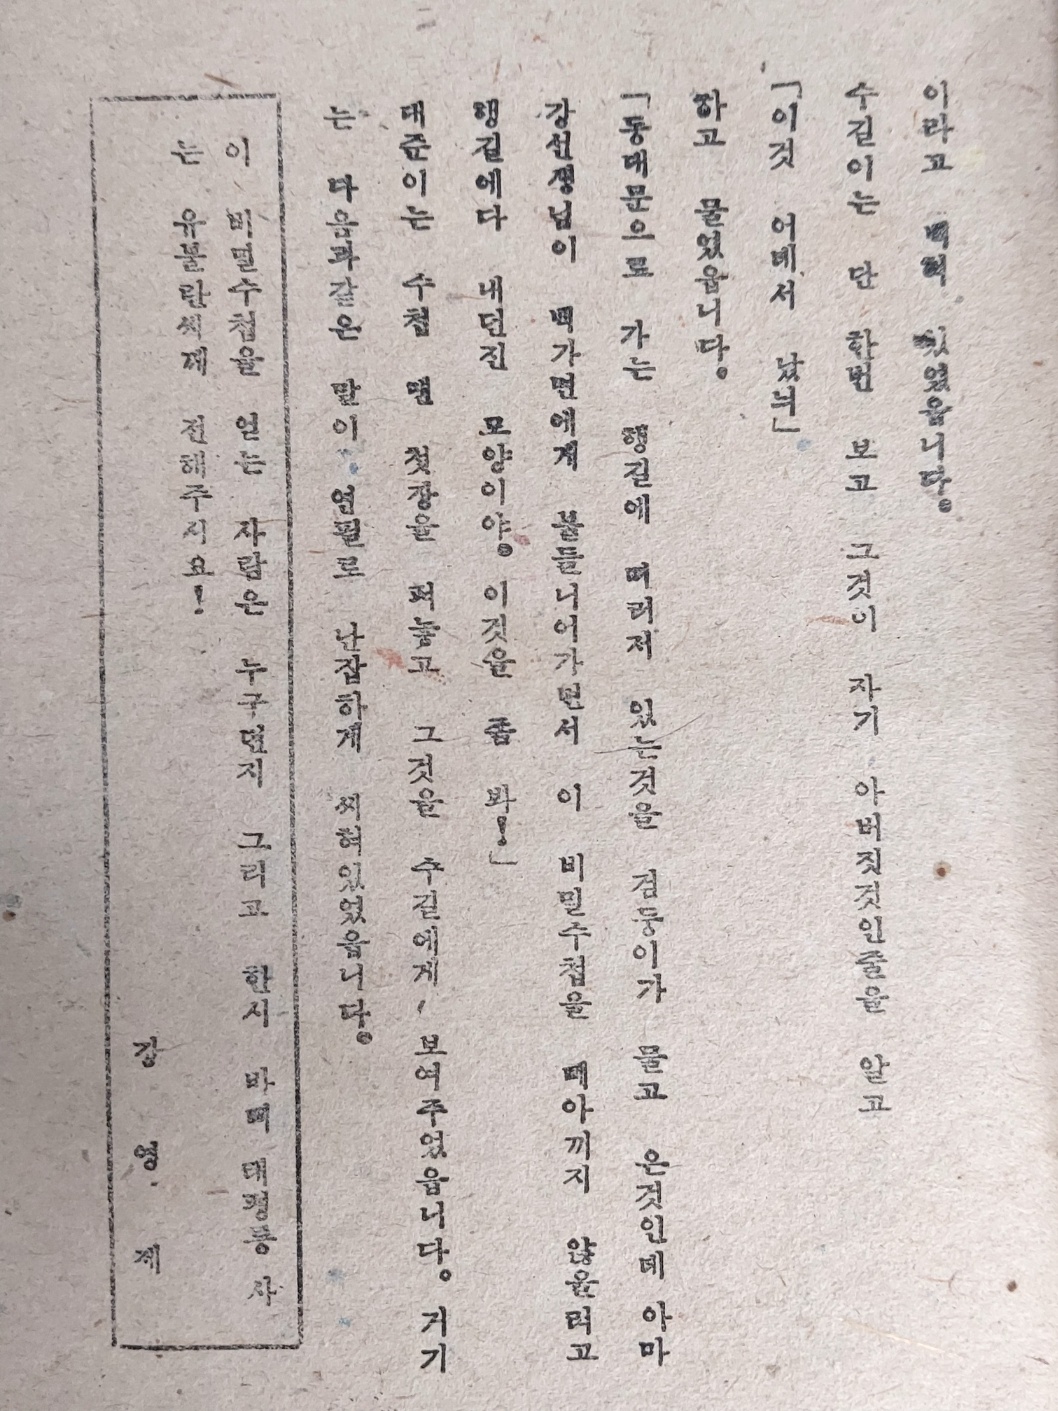 이라고 씨여 있었읍니다。
수길이는 단 한번 보고 그것이 자기 아버짓것인줄을 알고
「이것 어데서 났늬」
하고 물었읍니다。
「동대문으로 가는 행길에 떠러저 있는것을 검둥이가 물고 온것인데 아마
강선생님이 떠가면에게 붓들니어가면서 이 비밀수첩을 빼아끼지 않을려고
행길에다 내던진 모양이야。이것을 좀 봐!」
대준이는 수첩 맨 첫장을 펴놓고 그것을 수길에게 보여주었읍니다。거기
는 다음과같은 말이 연필로 난잡하게 씨혀있었읍니다。
이 비밀수첩을 얻는 사람은 누구던지 그리고 한시 바삐 태평동 사
는 유불란씨께 전해주시요!
강 영 제